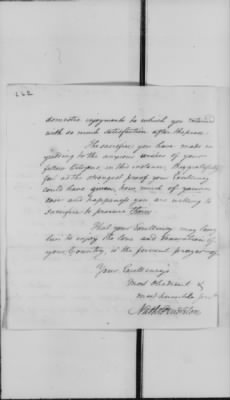 domestic enjoyments to which you retired
with so much satisfaction after the peace.
The sacrifice you have made in
yielding to the anxious wishes of your
fellow Citizens, in this instance, they gratefully
feel as the strongest proof your Excellency
could have given, how much of your own
ease and happiness you are willing to
sacrifice to promote theirs
That your Excellency may long
live to enjoy the love and veneration of
your Country, is the fervent prayer of
Your Excellency's
Most obedient &
most humble Servt
Nathl Pendleton